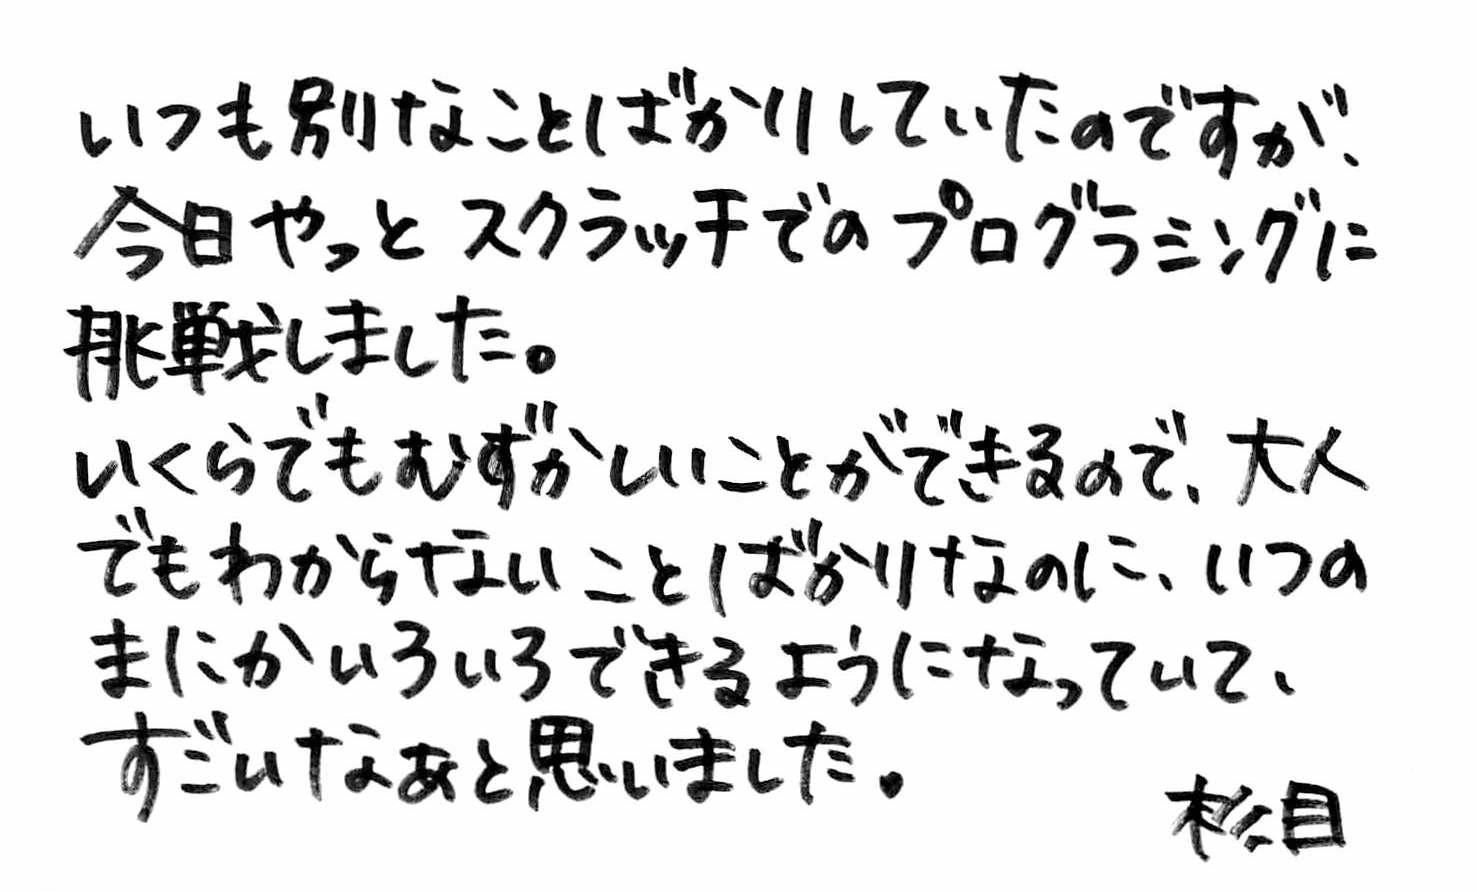 いつも別なことばかりしていたのですが、
今日やっとスクラッチでのプログラミングに
挑戦しました。
いくらでもむずかしいことができるので、大人
でもわからないことばかりなのに、いつの
まにかいろいろできるようになっていて、
すごいなあと思いました。
松目